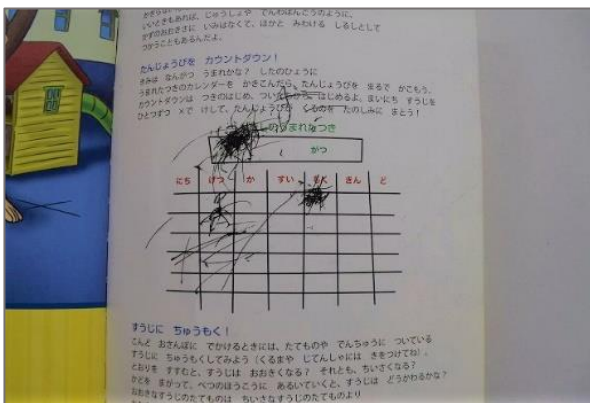 いいときもあれば、じゅうしょや でんわばんごうのように、
かずのおおきさに いみはなくて、ほかと みわける しるしとして
つかうこともあるんだよ。
たんじょうびを カウントダウン！
きみは なんがつ うまれかな？ したのひょうに
うまれたつきのカレンダーを かきこんだら、たんじょうびを まるで かこもう。
カウントダウンは つきのはじめ、ついたちから はじめるよ。まいにち すうじを
ひとつずつ ×で けして、たんじょうびが くるのを たのしみに まとう！
のうまれたつき
がつ
にち げつ か すい もく きん ど
すうじに ちゅうもく！
こんど おさんぽに でかけるときには、たてものや でんちゅうに ついている
すうじに ちゅうもくしてみよう（くるまや じてんしゃには きをつけてね）。
とおりを すすむと、すうじは おおきくなる？ それとも、ちいさくなる？
かどを まがって、べつのほうこうに あるいていくと、すうじは どうかわるかな？
おおきなすうじのたてものは ちいさなすうじのたてものより